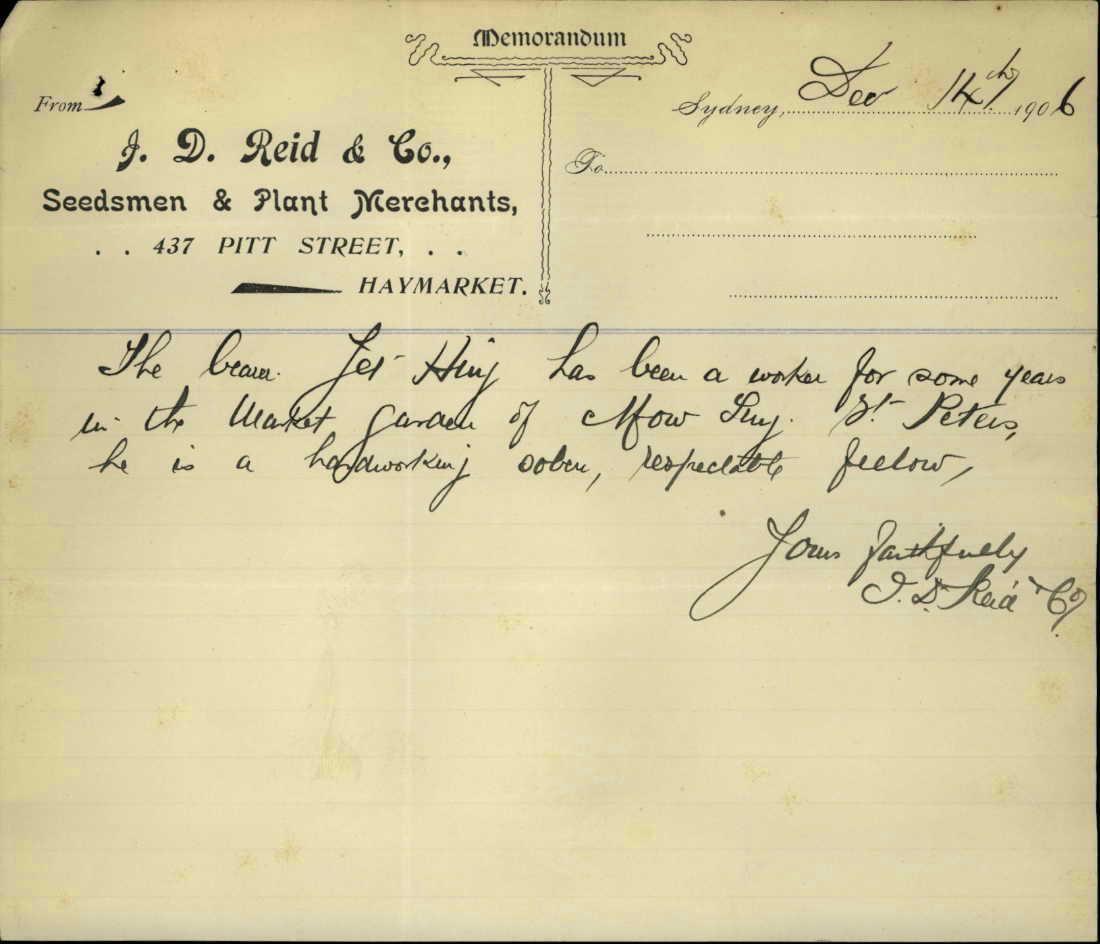 Memorandum
From
J. D. Reid & Co.,
Seedsmen & Plant Merchants,
. . 437 PITT STREET, . .
HAYMARKET.
Sydney, Dec 14th 1906
To
The bearer Hing has been a worker for some years
in the Market Garden of Mow St. Peters,
he is a hardworking sober, respectable fellow,
Yours faithfully
J. D. Reid & Co